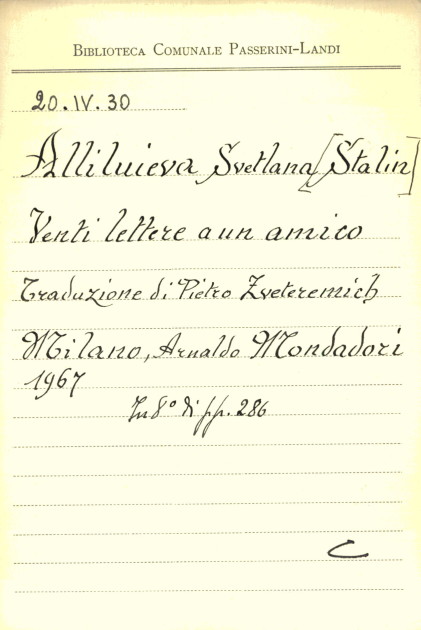 BIBLIOTECA COMUNALE PASSERINI-LANDI
20.IV.30
Alliluieva Svetlana [Stalin]
Venti lettere a un amico
Traduzione di Pietro Zveteremich
Milano, Arnaldo Mondadori
1967
In 8° di pp. 286
C